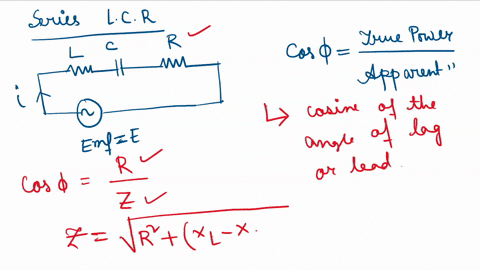 Series L.C.R
L C R
i
Emf=E
Cosϕ = R / Z
Z = √R²+(XL-X.
Cosϕ = True Power / Apparent "
↳ cosine of the
angle of lag
or lead.